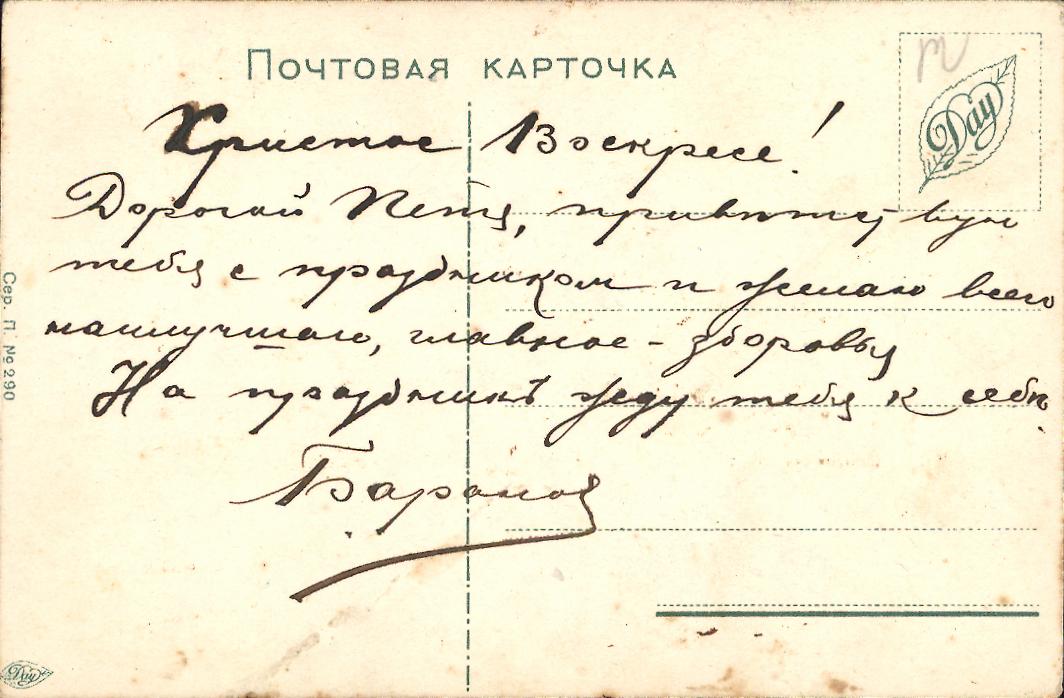 Почтовая карточка
Day
Христос Воскресе!
Дорогой Петя, привѣтствую
тебя с праздником и желаю всего
наилучшаго, главное - здоровья
На праздникъ жду тебя к себѣ
Баранов
Сер. П. № 290
Day